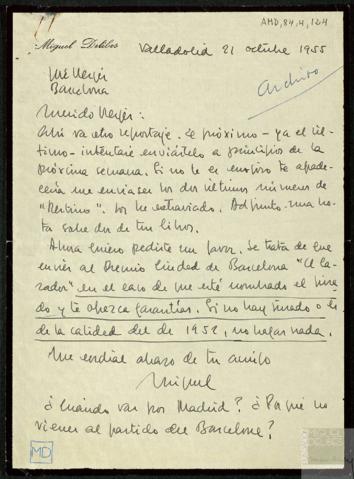 AMD,84,4,124
Miguel Delibes
Valladolid 21 octubre 1955
José Vergés
Barcelona
Archivo
Querido Vergés:
Ahí va otro reportaje. El próximo - ya el úl-
timo - intentaré enviártelo a principios de la
próxima semana. Si no te es engorroso te agrade-
cería me enviases los dos últimos números de
"Destino". Los he extraviado. Adjunto una no-
ta sobre de tu libro.
Ahora quiero pedirte un favor. Se trata de que
envíes al Premio Ciudad de Barcelona "El ca-
zador" en el caso de que esté nombrado el jura-
do y te ofrezca garantías. Si no hay jurado o es
de la calidad del de 1952, no hagas nada.
Un cordial abrazo de tu amigo
Miguel
¿Cuándo vas por Madrid? ¿Por qué no
vienes al partido del Barcelona?
MD